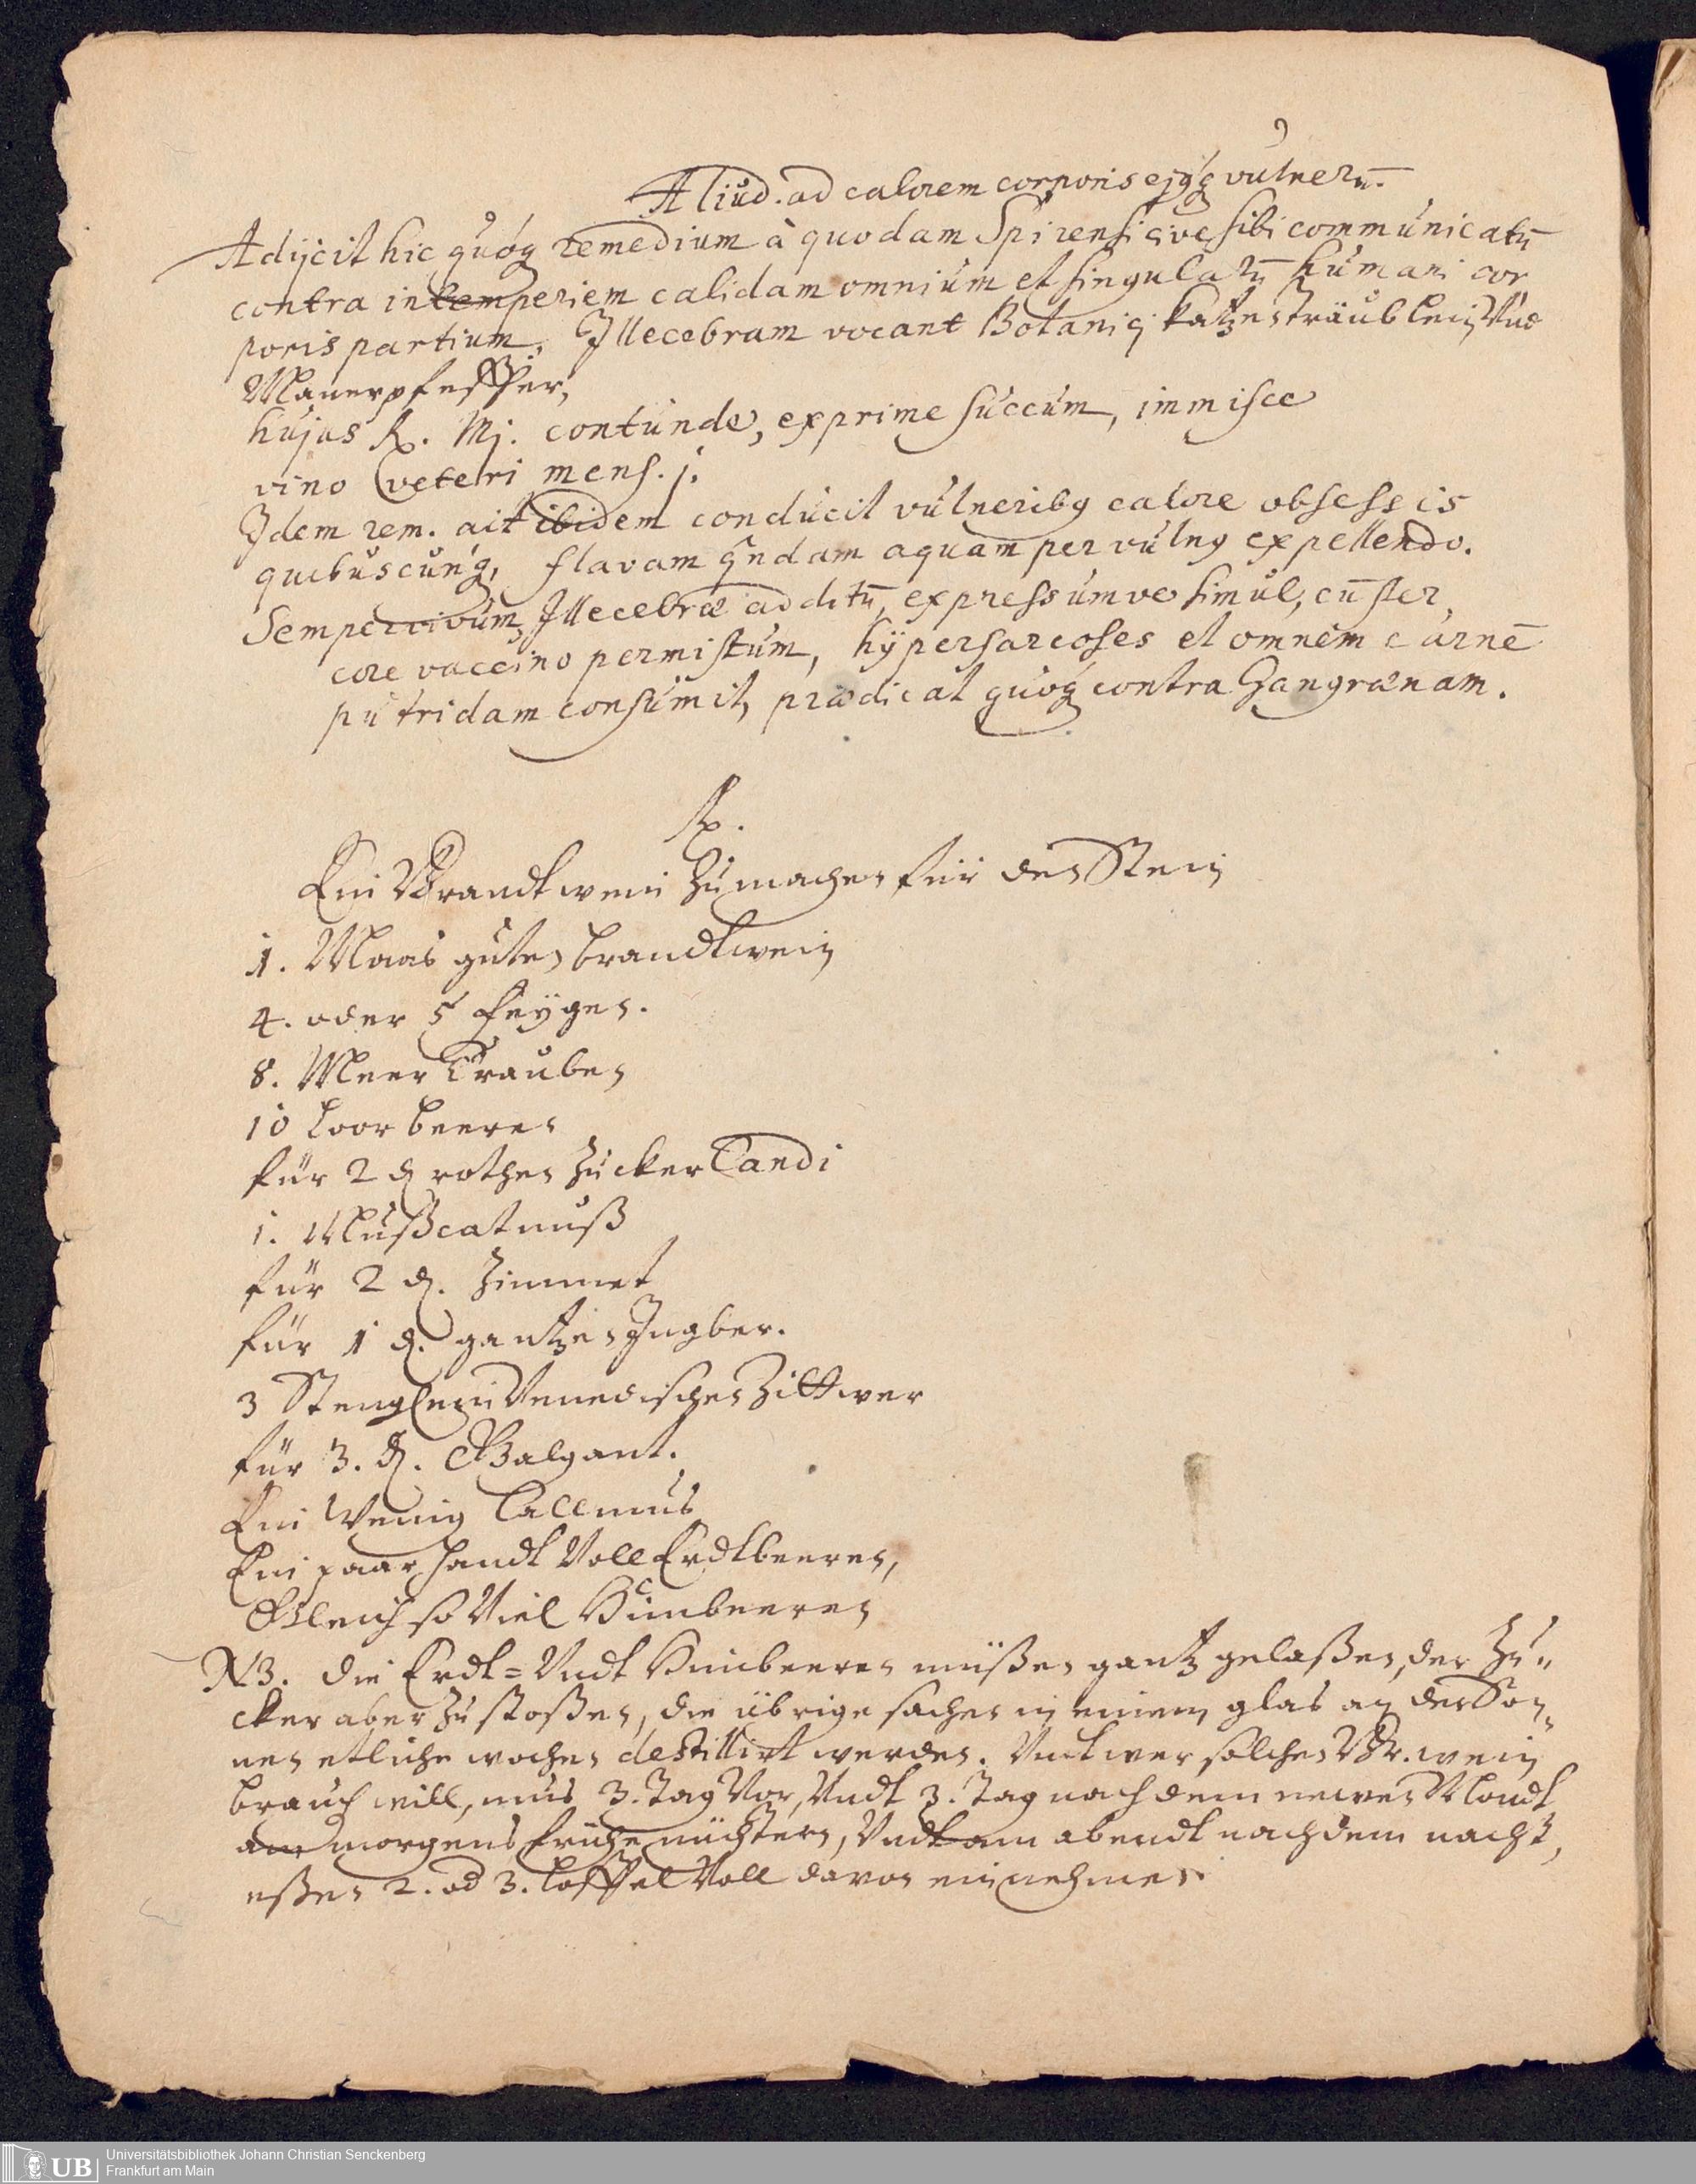 Aliud. ad calorem corporis ejq́; vulnerū.
Adijcit hic quoq́; remedium à quodam Spirensi cive sibi communicatū
contra intemperiem calidam omnium et singularū humani cor
poris partium. Illecebram vocant Botanici Katzensträublein Vnd
Maurpfeffer,
hujus ℞. Mj. contunde, exprime succum, immisce
vino veteri mens. j.
Idem rem. ait ibidem conducit vulneribꝯ calore obsessis
quibuscunq́;, flavam qndam aquam per vulnꝯ expellendo.
Sempervivum Illecebræ additū, expressumve simul, cū ster,
core vaccino permistum, hÿpersarcoses et omnem carnē
putridam consumit, prædicat quoq́; contra Gangrænam.
℞.
Ein Brandtwein Zumachen für den Stein
1. Maas guten brandtwein
4. oder 5 feÿgen.
8. Meer Trauben
10 Loor beeren
für 2 ₰ rothen Zucker Candi
1. Mußcatnuß
für 2 ₰. Zimmet
für 1 ₰. gantzen Ingber.
3 Stenglein Venedischen Zittwer
für 3. ₰. Galgant.
Ein Wenig Callmus
Ein paar handt Voll Erdtbeeren,
Gleich so Viel Himbeeren
NB. die Erdt= Vndt Himbeeren müßen gantz gelaßen, der Zu„
cker aber Zustoßen, die übrige sachen in einem glas an der Son„
nen etliche wochen destillirt werden. Vndt wer solchen Br. wein
brauch will, mus 3. Tag Vor, Vndt 3. Tag nach dem newen Mondt
am morgens frühe nüchtern, Vndt am abendt nach dem nacht,
eßen 2. od 3. Löffel Voll davon einnehmen.
Universitätsbibliothek Johann Christian Senckenberg
Frankfurt am Main
UB